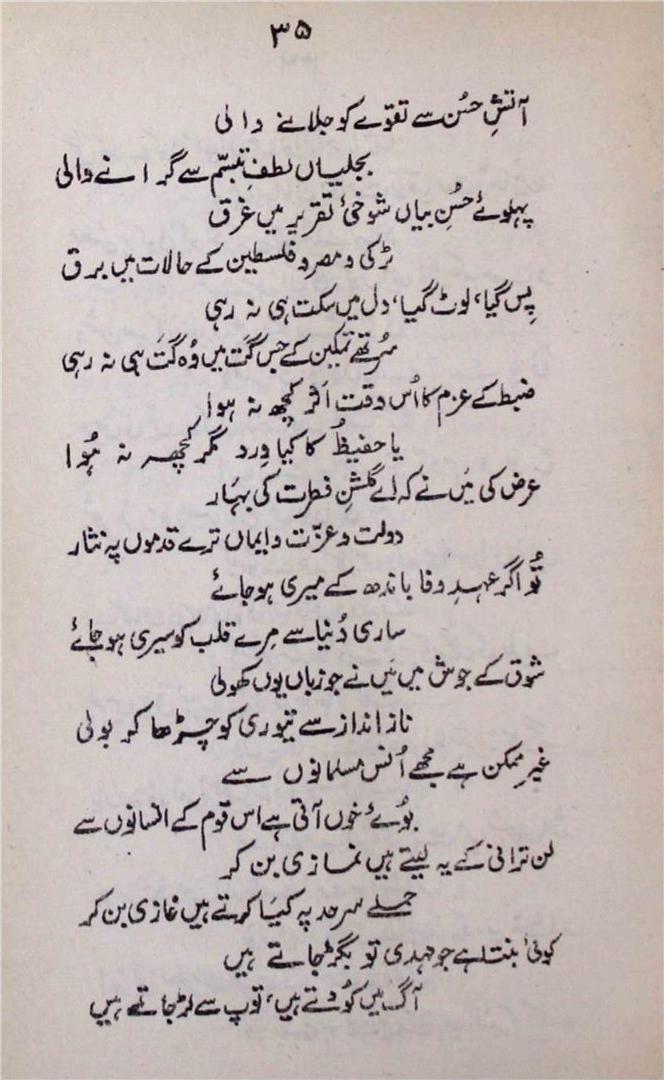 ۳۵
آتشِ حُسن سے تقوےٰ کو جلانے والی
بجلیاں لطفِ تبسّم سے گرانے والی
پہلوئے حُسنِ بیاں شوخیٔ تقریر میں غرق
ٹرکی و مصر و فلسطین کے حالات میں برق
پِس گیا، لوٹ گیا، دل میں سکت ہی نہ رہی
سُر تھے تمکین کے جس گت میں وُہ گت ہی نہ رہی
ضبط کے عزم کا اُس وقت اثر کچھ نہ ہوا
یا حفیظُ کا کیا وِرد مگر کچھ نہ ہُوا
عرض کی مَیں نے کہ اے گلشنِ فطرت کی بہار
دولت و عزّت و ایماں ترے قدموں پہ نثار
تُو اگر عہدِ وفا باندھ کے میری ہو جائے
ساری دُنیا سے مِرے قلب کو سیری ہو جائے
شوق کے جوش میں مَیں نے جو زباں یوں کھولی
ناز انداز سے تیوری کو چڑھا کر بولی
غیر ممکن ہے مجھے اُنس مسلمانوں سے
بُوئے خوں آتی ہے اس قوم کے انسانوں سے
لن ترانی کے یہ لیتے ہیں نمازی بن کر
حملے سرحد پہ کیا کرتے ہیں غازی بن کر
کوئی بنتا ہے جو مہدی تو بگڑ جاتے ہیں
آگ میں کُودتے ہیں، توپ سے لڑ جاتے ہیں